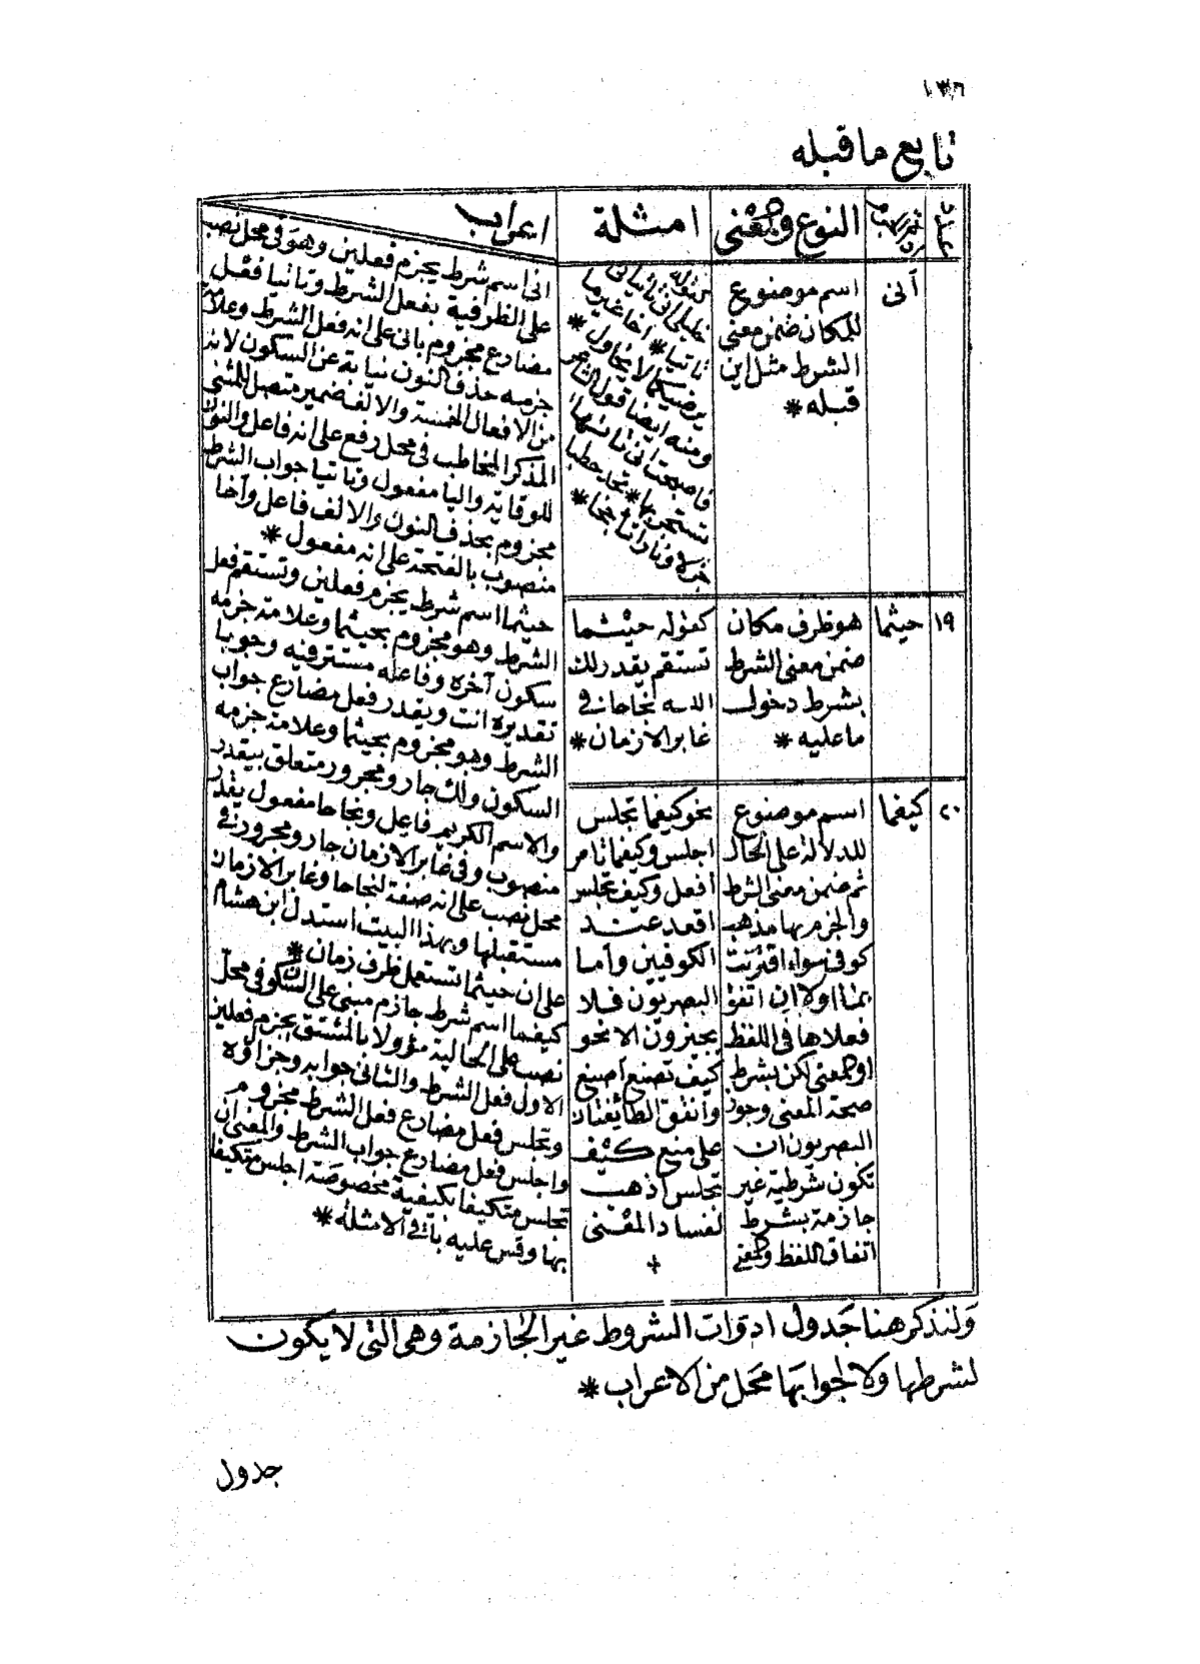 ١٣٦
تابع ما قبله
عدد
النوع والمعنى
امثلة
اعراب
أنى
اسم موضوع
للمكان ضمن معنى
الشرط مثل اين
قبله *
كقوله
خليلى انى تأتيانى
تأتيا * اخا غير ما
يرضيكما لا يحاول *
ومنه ايضا قول الشاعر
فاصبحت انى تأتها
تستجر بها * تجد حطبا
جزلا ونارا تأججا *
انى اسم شرط يجزم فعلين وهو فى محل نصب
على الظرفية بفعل الشرط وتأتيا فعل
مضارع مجزوم بانى على انه فعل الشرط وعلامة
جزمه حذف النون نيابة عن السكون لانه
من الافعال الخمسة والالف ضمير متصل للمثنى
المذكر المخاطب فى محل رفع على انه فاعل والنون
للوقاية واليا مفعول وتأتيا جواب الشرط
مجزوم بحذف النون والالف فاعل وأخا
منصوب بالفتحة على انه مفعول *
١٩
حيثما
هو ظرف مكان
ضمن معنى الشرط
بشرط دخول
ما عليه *
كقوله حيثما
تستقم يقدر لك
الله نجاحا فى
غابر الازمان *
حيثما اسم شرط يجزم فعلين وتستقم فعل
الشرط وهو مجزوم بحيثما وعلامة جزمه
سكون آخره وفاعله مستتر فيه وجوبا
تقديره انت ويقدر فعل مضارع جواب
الشرط وهو مجزوم بحيثما وعلامة جزمه
السكون ولك جار ومجرور متعلق بيقدر
والاسم الكريم فاعل ونجاحا مفعول يقدر
منصوب وفى غابر الازمان جار ومجرور فى
محل نصب على انه صفة لنجاحا وغابر الازمان
مستقبلها وبهذا البيت استدل ابن هشام
على ان حيثما تستعمل ظرف زمان *
٢٠
كيفما
اسم موضوع
للدلالة على الحال
ثم ضمن معنى الشرط
والجزم بها مذهب
كوفى سواء اقترنت
بما اولا ان اتفق
فعلاها فى اللفظ
او المعنى لكن بشرط
صحة المعنى وجوز
البصريون ان
تكون شرطية غير
جازمة بشرط
اتفاق اللفظ والمعنى
نحو كيفما تجلس
اجلس وكيفما تأمر
أفعل وكيف تجلس
اقعد عند
الكوفيين وأما
البصريون فلا
يجيزون الا نحو
كيف تصنع أصنع
وأتفق الطائفتان
على منع كيف
تجلس أذهب
لفساد المعنى
كيفما اسم شرط جازم مبنى على السكون فى محل
نصب على الحالية مؤولا بالمشتق يجزم فعلين
الاول فعل الشرط والثانى جوابه وجزاؤه
وتجلس فعل مضارع فعل الشرط مجزوم
واجلس فعل مضارع جواب الشرط والمعنى ان
تجلس متكيفا بكيفية مخصوصة اجلس متكيفا
بها وقس عليه باقى الامثلة *
ولنذكر هنا جدول ادوات الشروط غير الجازمة وهى التى لا يكون
لشرطها ولا لجوابها محل من الاعراب *
جدول